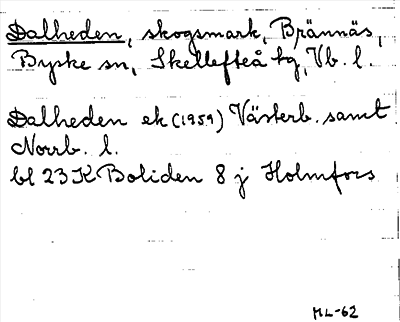 Dalheden, skogsmark, Brännäs,
Byske sn, Skellefteå tg, Vb. l.
Dalheden ek (1959) Västerb. samt
Norrb. l.
bl 23 K Boliden 8 j Holmfors
ML-62